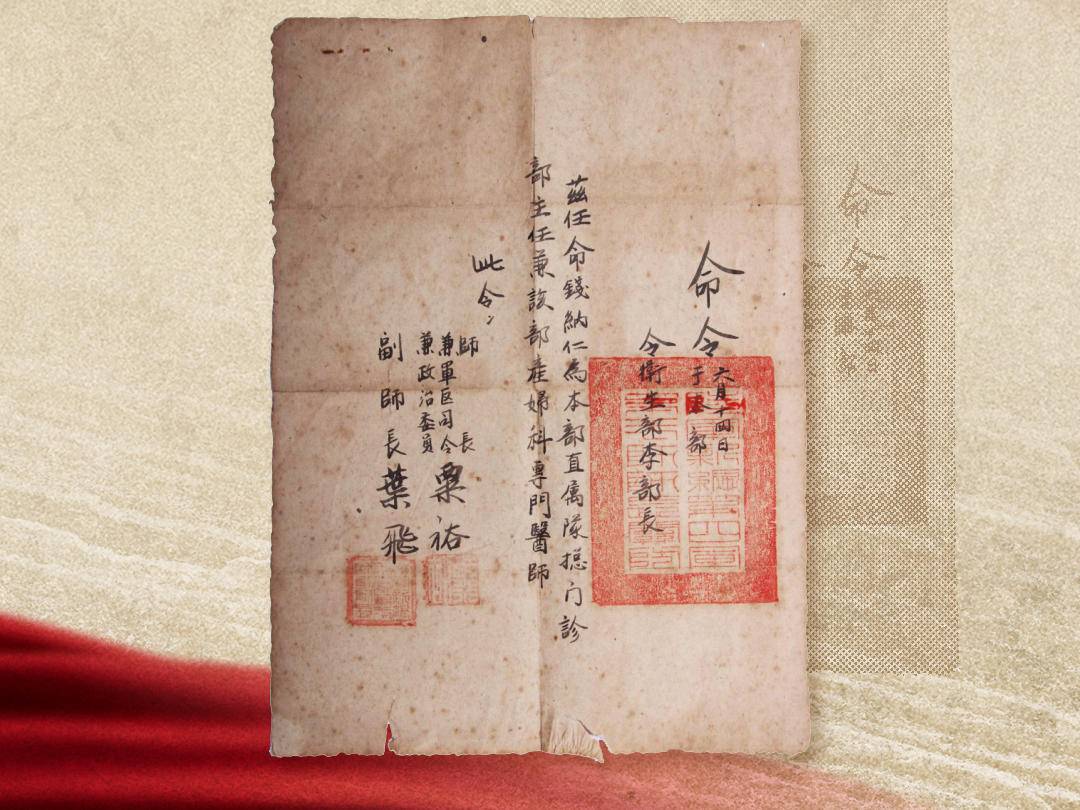 命令
六月十四日
于 部
令衛生部李部長
茲任命錢納仁為本部直属隊總门診
部主任兼該部產婦科專門醫師
此令
師長
兼軍區司令
兼政治委員
粟裕
副師長葉飛
命令